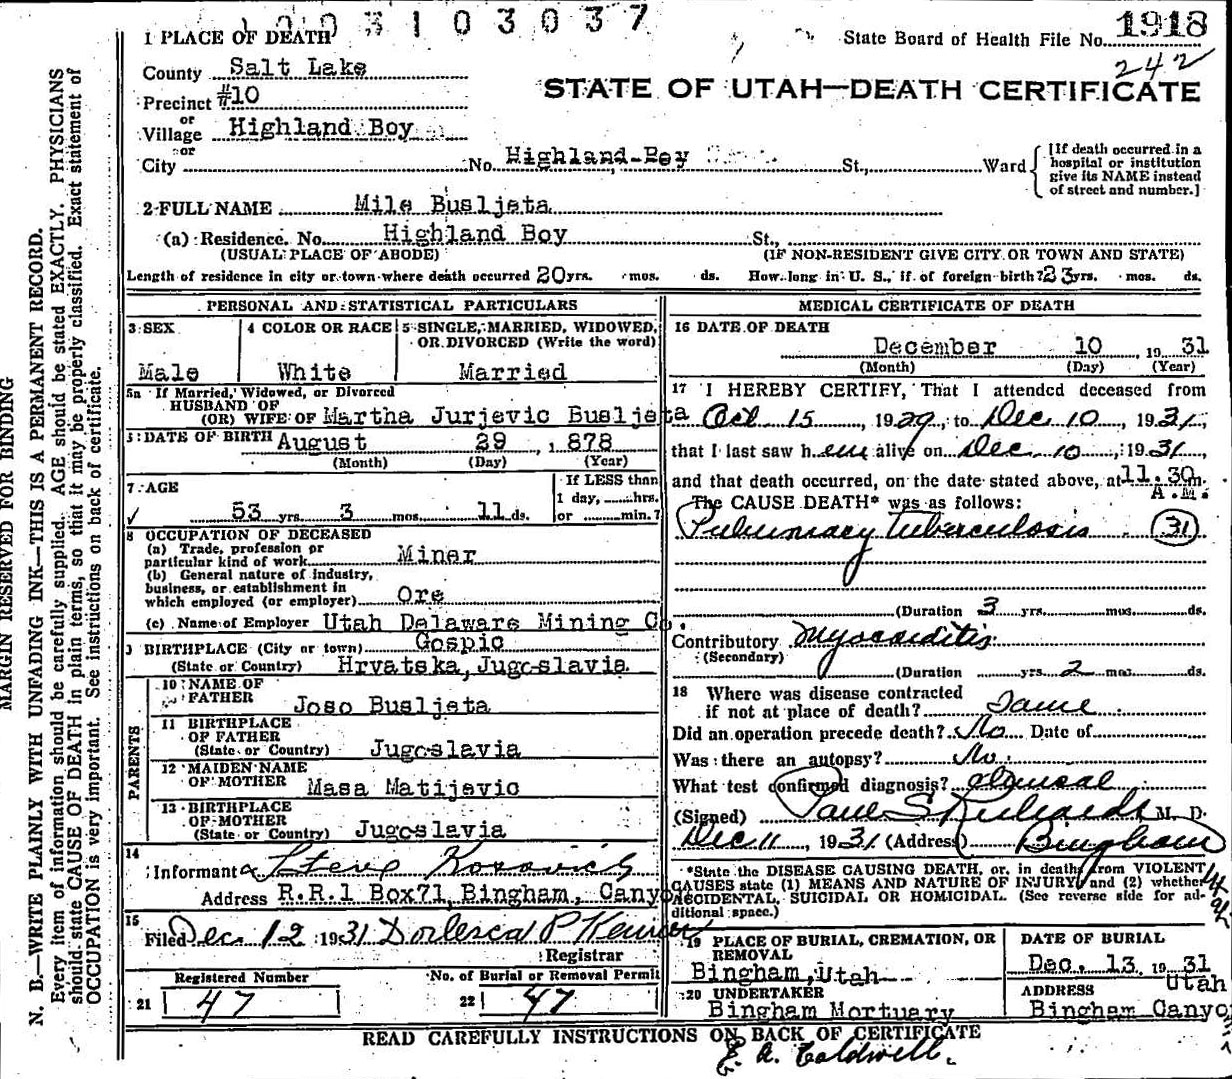 1 0 0 3 1 0 3 0 3 7
1 PLACE OF DEATH
State Board of Health File No. 1918
242
County Salt Lake
STATE OF UTAH—DEATH CERTIFICATE
Precinct #10
or
Village Highland Boy
or
City No. Highland Boy St., Ward
[If death occurred in a hospital or institution give its NAME instead of street and number.]
2 FULL NAME Mile Busljeta
(a) Residence. No. Highland Boy St.,
(USUAL PLACE OF ABODE) (IF NON-RESIDENT GIVE CITY OR TOWN AND STATE)
Length of residence in city or town where death occurred 20 yrs. mos. ds. How long in U. S., if of foreign birth? 23 yrs. mos. ds.
PERSONAL AND STATISTICAL PARTICULARS
3 SEX
Male
4 COLOR OR RACE
White
5 SINGLE, MARRIED, WIDOWED, OR DIVORCED (Write the word)
Married
5a If Married, Widowed, or Divorced
HUSBAND OF
(OR) WIFE OF Martha Jurjevic Busljeta
DATE OF BIRTH August 29, 1878
(Month) (Day) (Year)
7 AGE
53 yrs. 3 mos. 11 ds.
If LESS than
1 day, hrs.
or min.?
8 OCCUPATION OF DECEASED
(a) Trade, profession or
particular kind of work Miner
(b) General nature of industry,
business, or establishment in
which employed (or employer) Ore
(c) Name of Employer Utah Delaware Mining Co.
9 BIRTHPLACE (City or town) Gospic
(State or Country) Hrvatska, Jugoslavia
PARENTS
10 NAME OF
FATHER Joso Busljeta
11 BIRTHPLACE
OF FATHER
(State or Country) Jugoslavia
12 MAIDEN NAME
OF MOTHER Masa Matijevic
13 BIRTHPLACE
OF MOTHER
(State or Country) Jugoslavia
14
Informant Steve Kosovich
Address R.R.1 Box71, Bingham, Canyo
15
Filed Dec 12 1931
Registrar
Registered Number
21 47
No. of Burial or Removal Permit
22 47
MEDICAL CERTIFICATE OF DEATH
16 DATE OF DEATH
December 10, 1931
(Month) (Day) (Year)
17 I HEREBY CERTIFY, That I attended deceased from
Oct 15, 1929, to Dec 10, 1931,
that I last saw h em alive on Dec 10, 1931,
and that death occurred, on the date stated above, at 11:30 m.
A.M.
The CAUSE DEATH* was as follows:
Pulmonary Tuberculosis 31
(Duration 3 yrs. mos. ds.
Contributory Myocarditis
(Secondary)
(Duration yrs. 2 mos. ds.
18 Where was disease contracted
if not at place of death? Same
Did an operation precede death? No Date of
Was there an autopsy? No
What test confirmed diagnosis? clinical
(Signed) Paul S Richards M. D.
Dec 11, 1931 (Address) Bingham
*State the DISEASE CAUSING DEATH, or, in death from VIOLENT
CAUSES state (1) MEANS AND NATURE OF INJURY, and (2) whether
ACCIDENTAL, SUICIDAL OR HOMICIDAL. (See reverse side for ad-
ditional space.)
19 PLACE OF BURIAL, CREMATION, OR
REMOVAL
Bingham, Utah
DATE OF BURIAL
Dec. 13, 1931
20 UNDERTAKER
Bingham Mortuary
ADDRESS Utah
Bingham Canyo
READ CAREFULLY INSTRUCTIONS ON BACK OF CERTIFICATE
E. A. Caldwell.
MARGIN RESERVED FOR BINDING
N. B.—WRITE PLAINLY WITH UNFADING INK—THIS IS A PERMANENT RECORD.
Every item of information should be carefully supplied. AGE should be stated EXACTLY. PHYSICIANS
should state CAUSE OF DEATH in plain terms, so that it may be properly classified. Exact statement of
OCCUPATION is very important. See instructions on back of certificate.